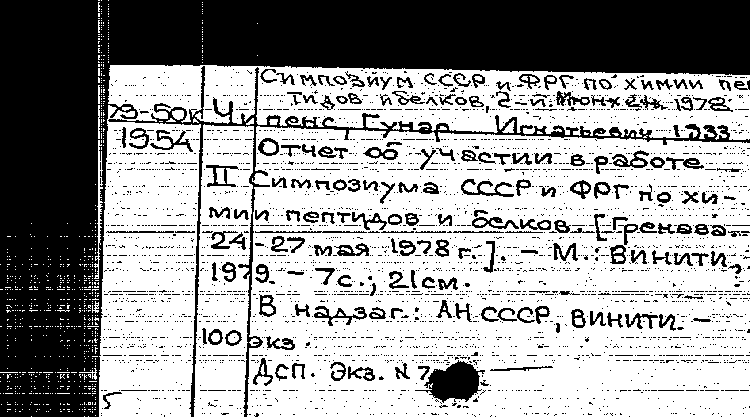 Симпозиум СССР и ФРГ по химии пеп
тидов и белков, 2-й. Мюнхен. 1978
79-50к Чипенс, Гунар Игнатьевич, 1933
1954 Отчет об участии в работе
II Симпозиума СССР и ФРГ по хи-
мии пептидов и белков. [Гренава.
24-27 мая 1978 г.]. - М.: ВИНИТИ,
1979. - 7с.; 21см.
В надзаг.: АН СССР, ВИНИТИ. -
100 экз.
ДСП. Экз. N 7
5